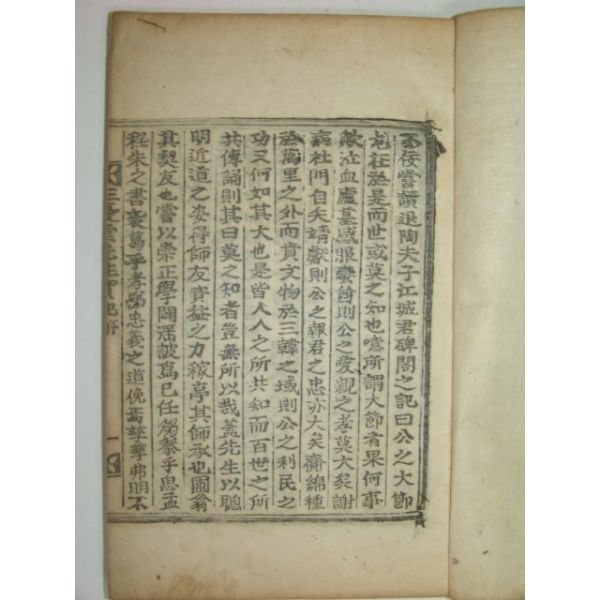 不佞嘗讀退陶夫子江城君碑閣之記曰公之大節
尤在於是而世或莫之知也噫所謂大節者果何事
歟泣血廬墓感服蠻酋則公之愛親之孝莫大矣謝
病杜門自矢靖獻則公之報君之忠亦大矣齎綿種
於萬里之外而賁文物於三韓之域則公之利民之
功又何如其大也是皆人人之所共知而百世之所
共傳誦則其曰莫之知者豈無所以哉盖先生以聰
明近道之姿得師友資益之力稼亭其師承也圃翁
其契友也嘗以崇正學闢淫詖爲己任芻豢乎思孟
程朱之書裘葛乎孝弟忠義之道俛焉孳孳弗明不
三憂堂先生實記序 一